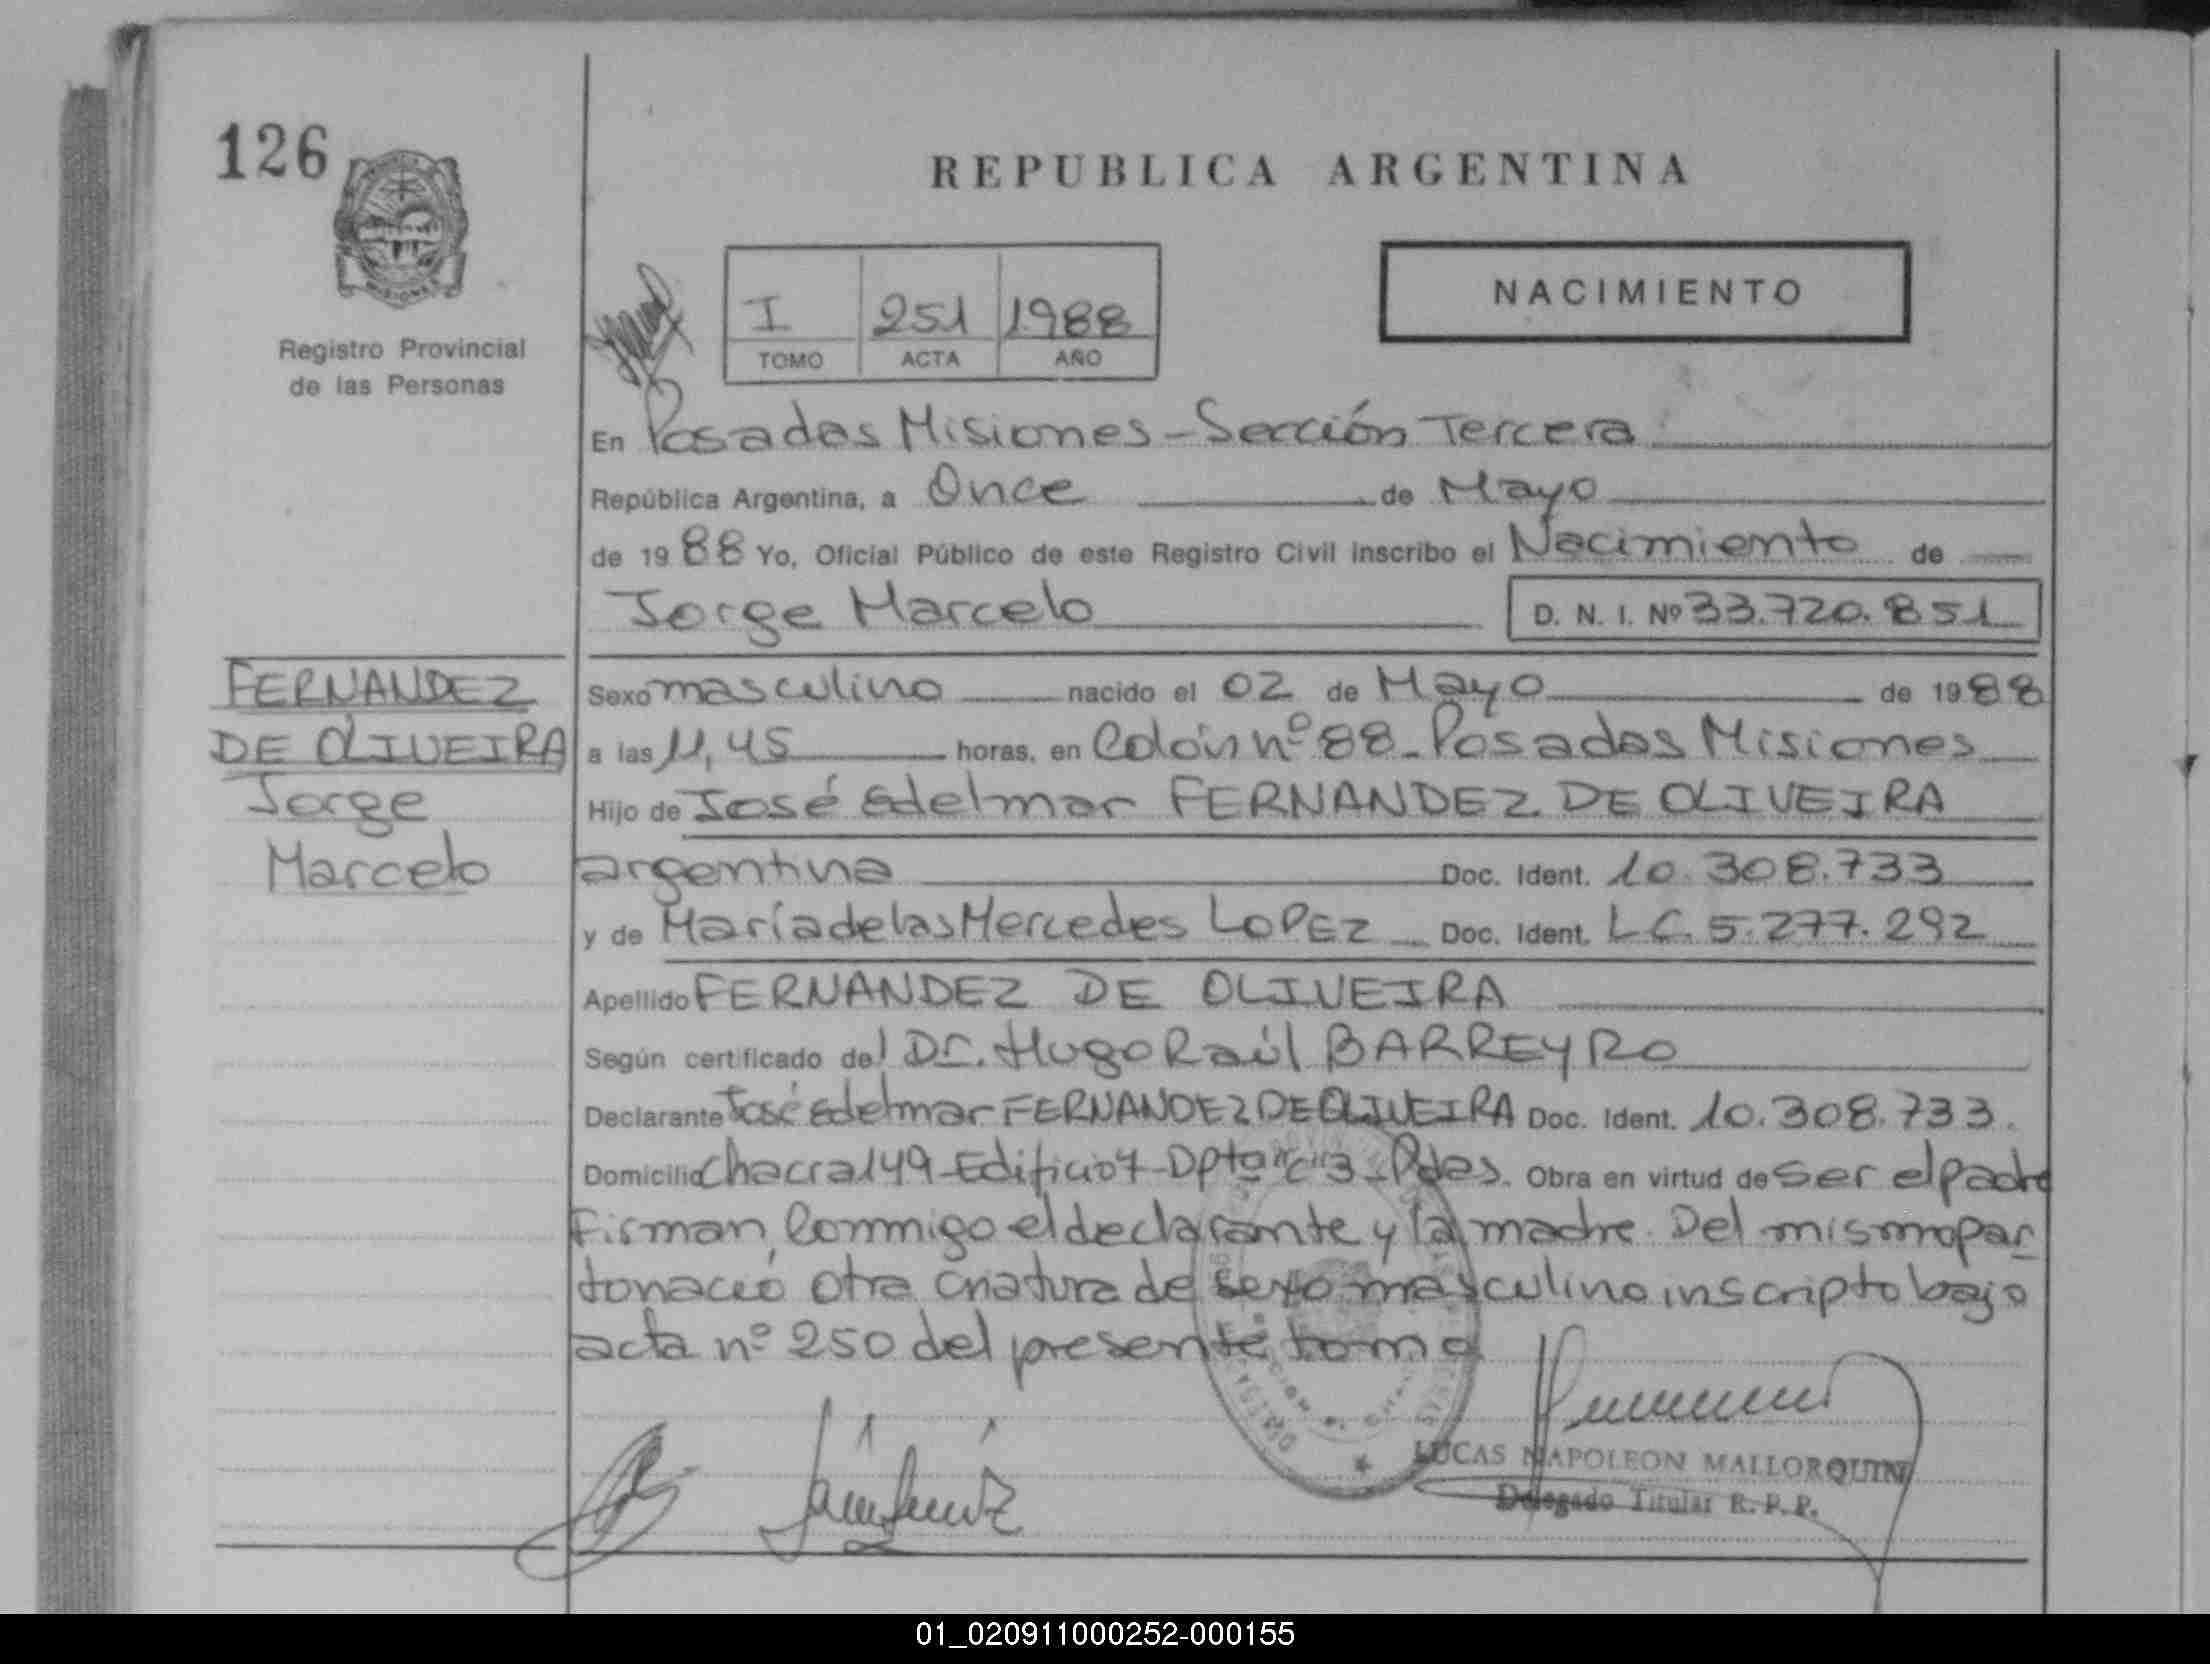 126
MISIONES
Registro Provincial
de las Personas
REPUBLICA ARGENTINA
I 251 1988
TOMO ACTA AÑO
NACIMIENTO
En Posadas Misiones - Sección Tercera
República Argentina, a Once de Mayo
de 1988 Yo, Oficial Público de este Registro Civil inscribo el Nacimiento de
Jorge Marcelo D. N. I. Nº 33.720.851
FERNANDEZ
DE OLIVEIRA
Jorge
Marcelo
Sexo masculino nacido el 02 de Mayo de 1988
a las 11,45 horas, en Colón nº 88 - Posadas Misiones
Hijo de José Edelmar FERNANDEZ DE OLIVEIRA
argentina Doc. Ident. 10.308.733
y de María de las Mercedes LOPEZ Doc. Ident. L.C. 5.277.292
Apellido FERNANDEZ DE OLIVEIRA
Según certificado del Dr. Hugo Raúl BARREYRO
Declarante José Edelmar FERNANDEZ DE OLIVEIRA Doc. Ident. 10.308.733.
Domicilio Chacra 149 - Edificio 7 - Dpto "C" 3 - Pdas. Obra en virtud de ser el padre
Firman, Conmigo el declarante y la madre. Del mismo par
to nació otra criatura de sexo masculino inscripto bajo
acta nº 250 del presente tomo
LUCAS NAPOLEON MALLORQUIN
Delegado Titular R. P. P.
01_020911000252-000155